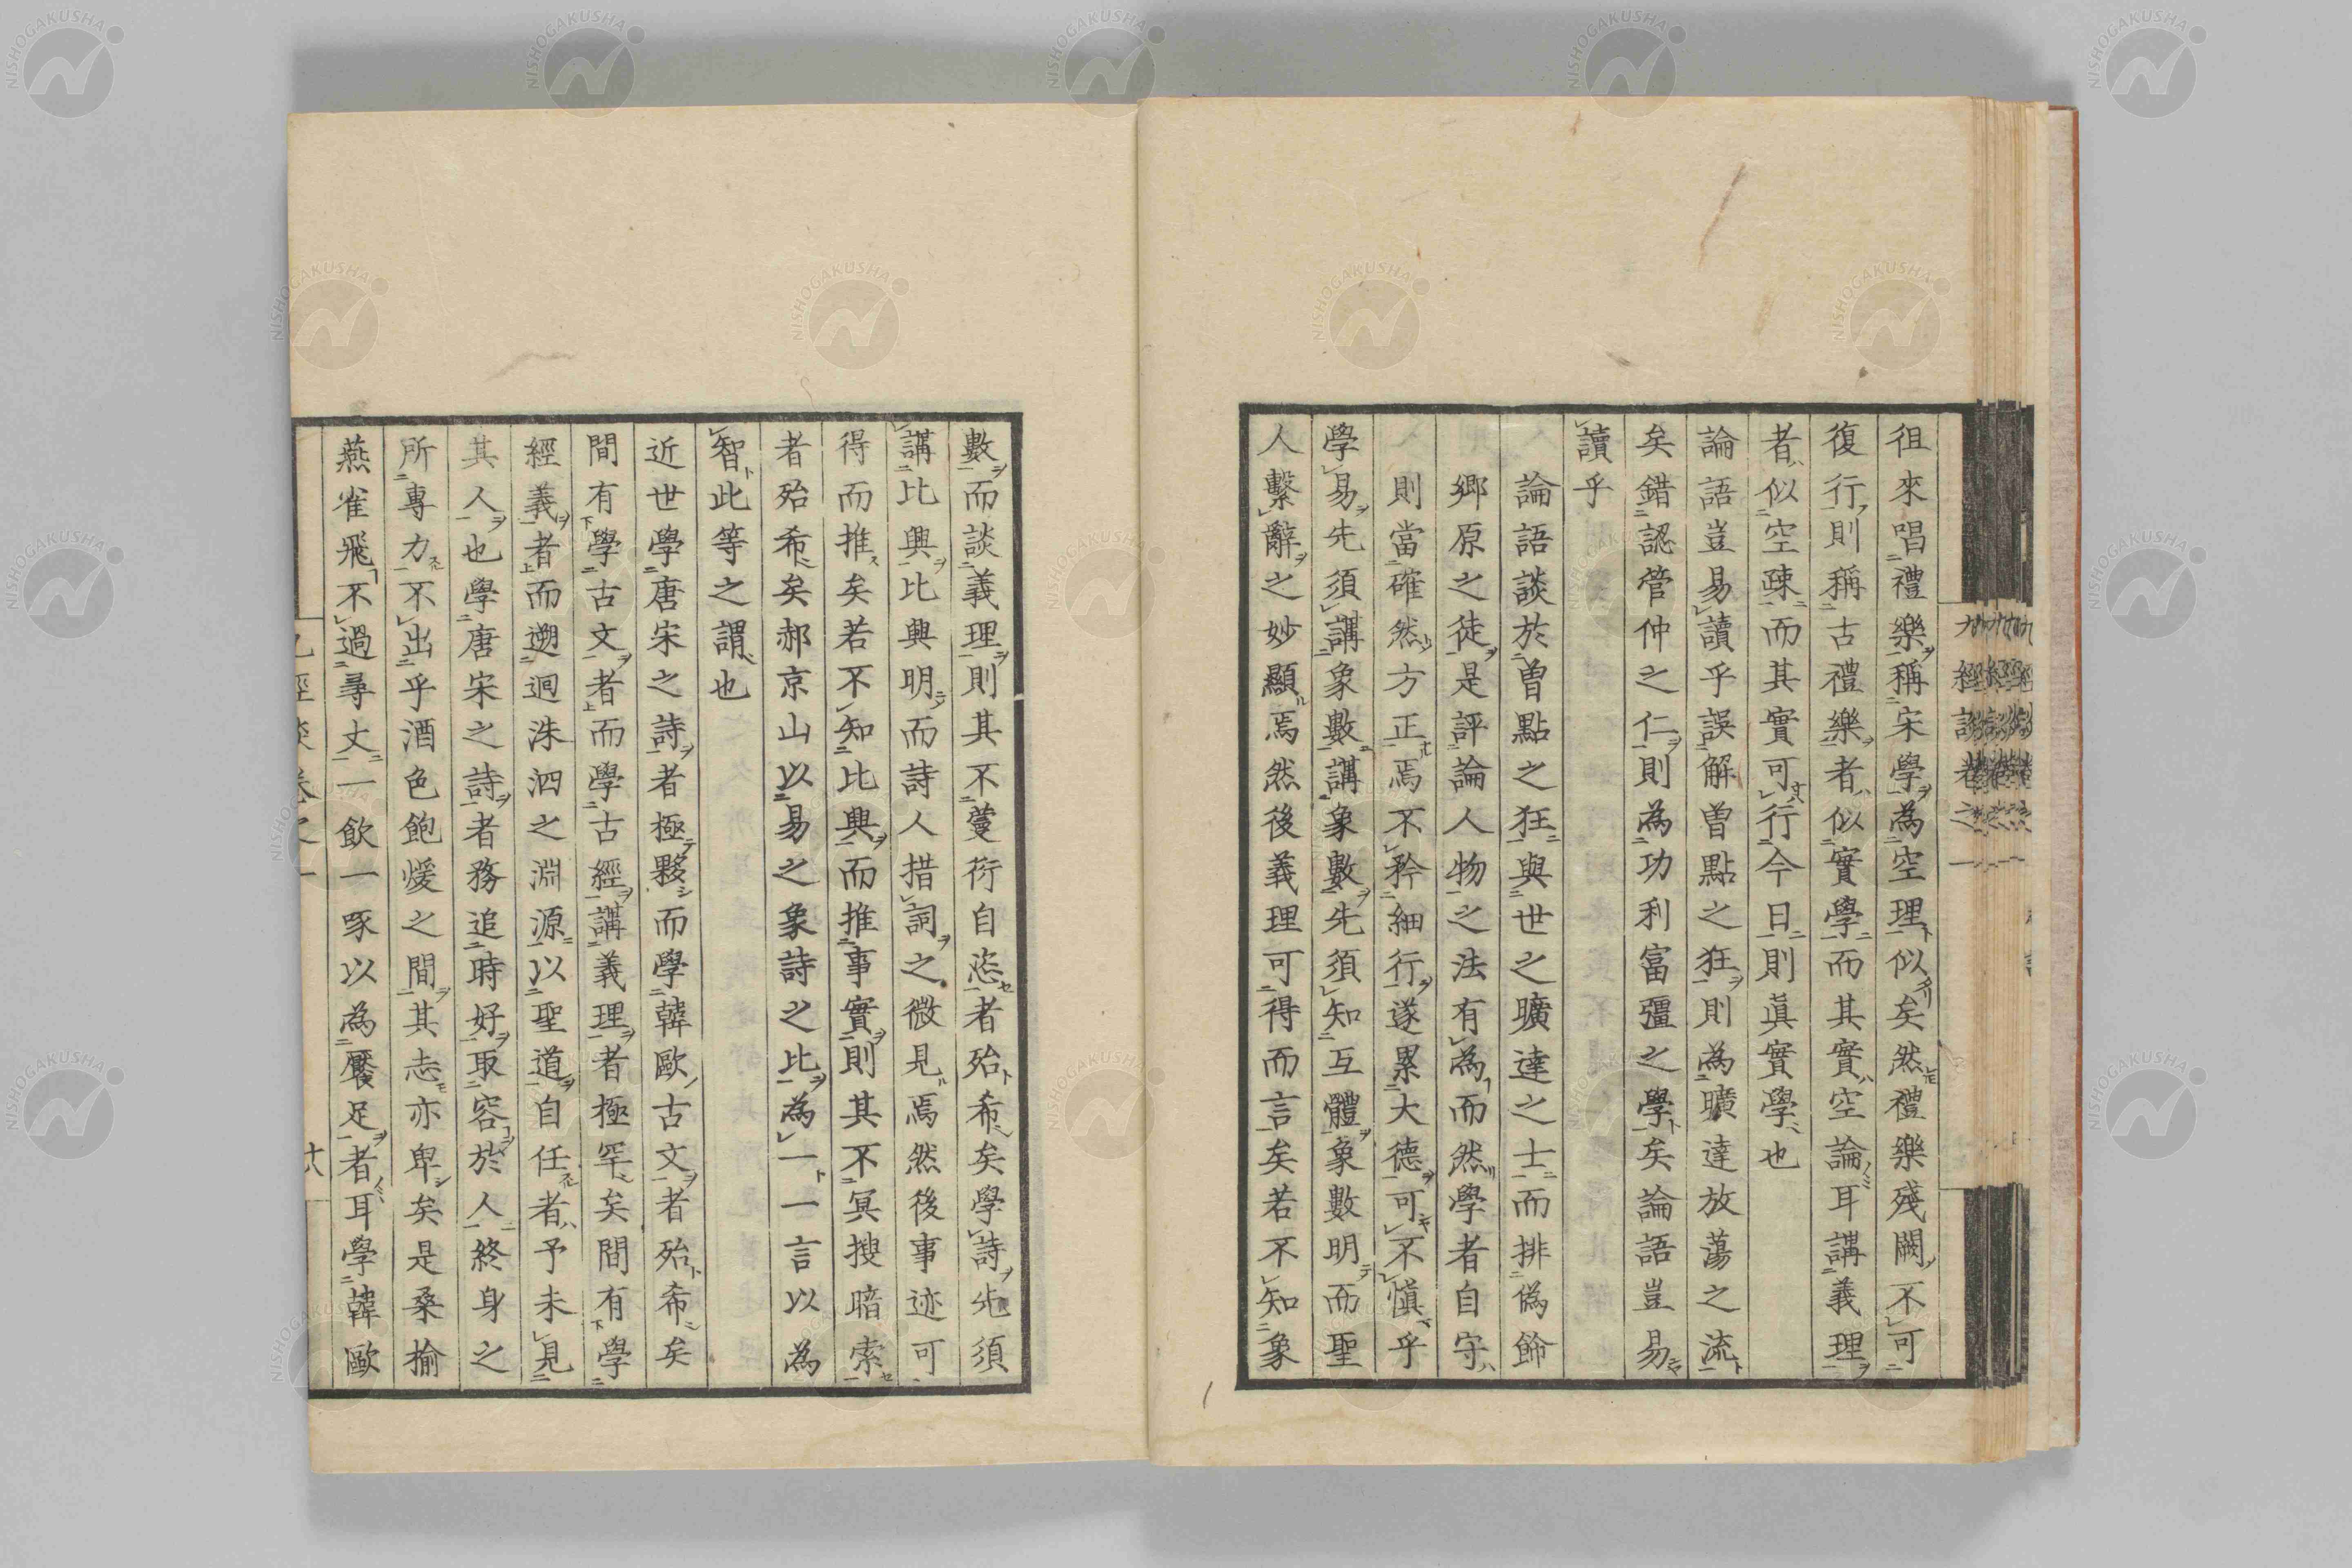 徂來唱禮樂稱宋學為空理似矣然禮樂殘闕不可
復行則稱古禮樂者似實學而其實空論耳講義理
者似空疎而其實可行今日則真實學也
論語豈易讀乎誤解曾點之狂則為曠達放蕩之流
矣錯認管仲之仁則為功利富彊之學矣論語豈易
讀乎
論語談於曾點之狂與世之曠達之士而排偽飾
鄉原之徒是評論人物之法有為而然學者自守
則當確然方正焉不矜細行遂累大德可不慎乎
學易先須講象數講象數先須知互體象數明而聖
人繫辭之妙顯焉然後義理可得而言矣若不知象
數而談義理則其不蔓衍自恣者殆希矣學詩先須
講比興比興明而詩人措詞之微見焉然後事迹可
得而推矣若不知比興而推事實則其不冥搜暗索
者殆希矣郝京山以易之象詩之比為一一言以為
智此等之謂也
近世學唐宋之詩者極夥而學韓歐古文者殆希矣
間有學古文者而學古經講義理者極罕矣間有學
經義者而遡洄洙泗之淵源以聖道自任者予未見
其人也學唐宋之詩者務追時好取容於人終身之
所專力不出乎酒色飽煖之間其志亦卑矣是桑揄
燕雀飛不過尋丈一飲一啄以為饜足者耳學韓歐
九經談卷之一
十六
九經談卷之一
NISHOGAKUSHA